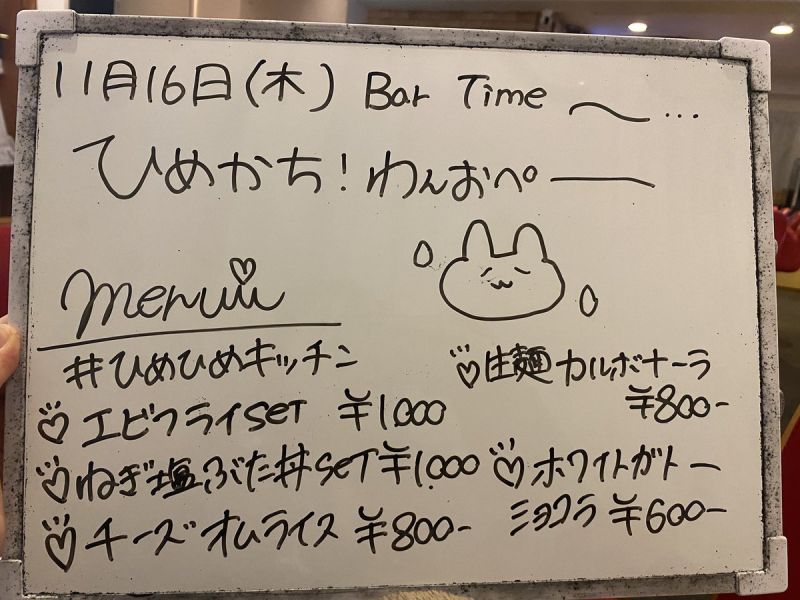 11月16日(木) Bar Time 〜...
ひめかち！わんおぺ──
menuuu
#ひめひめキッチン
♡エビフライSET ¥1000
♡ねぎ塩ぶた丼SET ¥1,000
♡チーズオムライス ¥800-
♡生麺カルボナーラ
¥800-
♡ホワイトガトー
ショコラ ¥600-